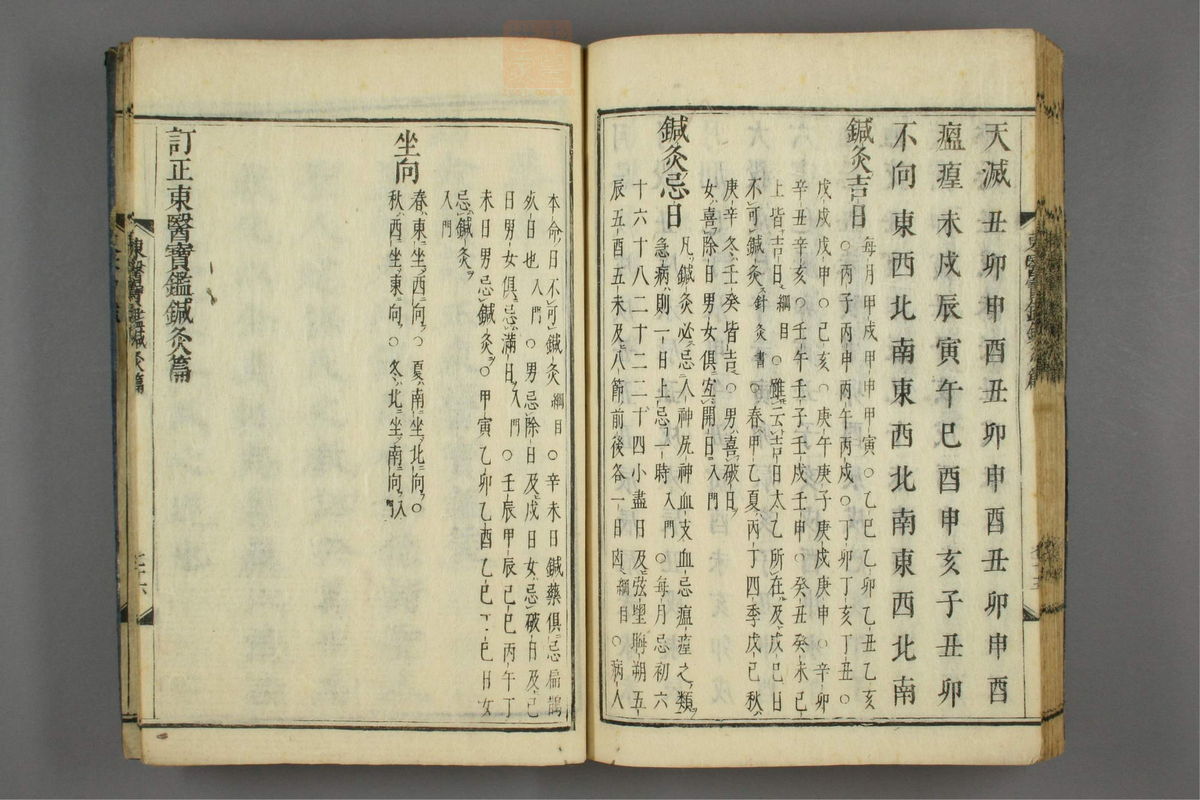 天滅丑卯申酉丑卯申酉丑卯申酉
瘟㾮未戌辰寅午巳酉申亥子丑卯
不向東西北南東西北南東西北南
鍼灸吉日
每月甲戌甲申甲寅○乙巳乙卯乙丑乙亥
○丙子丙申丙午丙戌○丁卯丁亥丁丑○
戊戌戊申○己亥○庚午庚子庚戌庚申○辛卯
辛丑辛亥○壬午壬子壬戌壬申○癸丑癸未已
上皆吉日綱目○雖云吉日太乙所在及戊己日
不可鍼灸針灸書○春甲乙夏丙丁四季戊己秋
庚辛冬壬癸皆吉○男喜破日
女喜除日男女俱宜開日入門
鍼灸忌日
凡鍼灸必忌人神尻神血支血忌瘟㾮之類ヲ
急病則一日上忌一時入門○每月忌初六
十六十八二十二二十四小盡日及弦望晦朔五
辰五酉五未及八節前後各一日凶綱目○病人
本命日不可鍼灸綱目○辛未日鍼藥俱忌扁鵲
死日也入門○男忌除日及戌日女忌破日及巳
日男女俱忌滿日入門○壬辰甲辰己巳丙午丁
未日男忌鍼灸○甲寅乙卯乙酉乙巳丁巳日女
忌鍼灸
入門
坐向
春東坐西向○夏南坐北向○
秋西坐東向○冬北坐南向入
訂正東醫寶鑑鍼灸篇
東醫寶鑑鍼灸篇